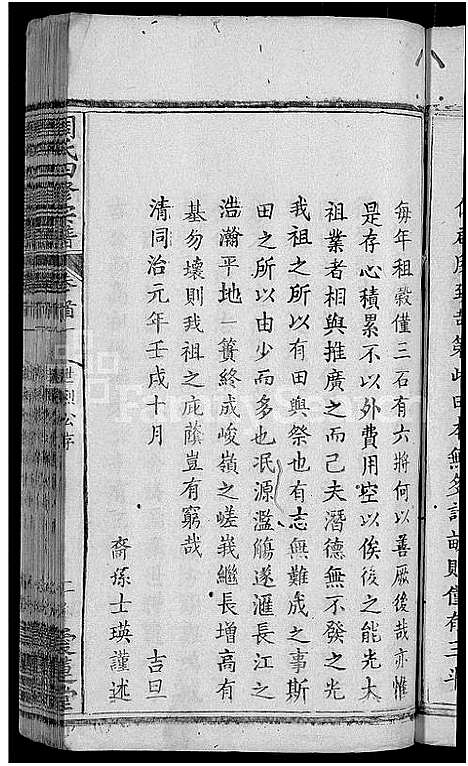 每年租穀僅三石有六將何以善厥後哉亦惟
是存心積累不以外費用空以俟後之能光大
祖業者相與推廣之而已夫潛德無不發之光
我祖之所以有田與祭也有志無難成之事斯
田之所以由少而多也泯源濫觴遂滙長江之
浩瀚平地一簣終成峻嶺之嵯峩繼長增高有
基勿壞則我祖之庇蔭豈有窮哉
清同治元年壬戌十月 吉旦
裔孫士瑛謹述
氏四修宗譜 卷首 公序